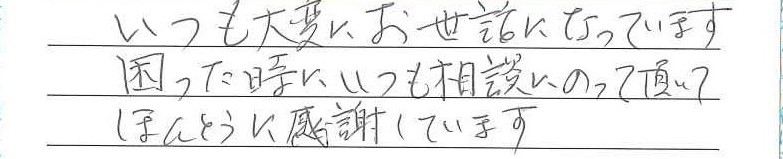 いつも大変にお世話になっています
困った時にいつも相談にのって頂いて
ほんとうに感謝しています